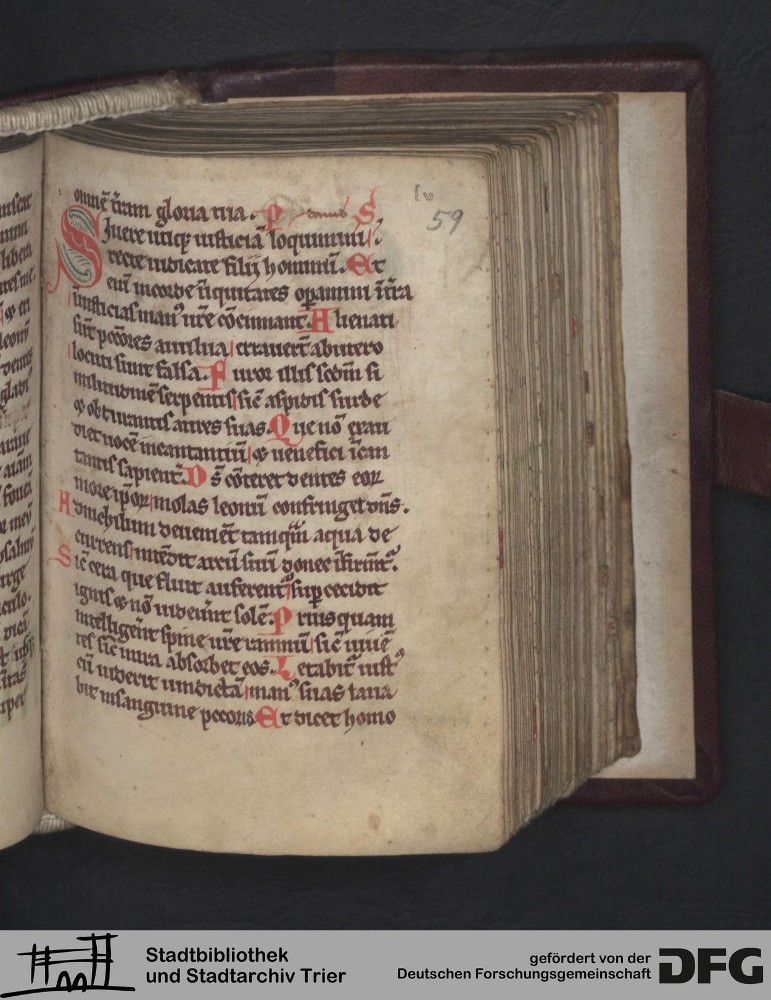 omnē t̄ram gloria tua. P
lv
59
Siuere utiqꝫ iusticiā loquimini.
recte iudicate filij hominū. Et
eni᷑ in corde iniquitates opamini i t̄ra
iniusticias man᷒ ure cōcinnant. Alienati
sūt pctōres a uulua errauerūt ab utero
locuti sunt falsa. Furor illis scdm si
militudinē serpentis sic̄ aspidis surde
⁊ obturantis aures suas. Que nō exau
diet uocē incantantiū ⁊ uenefici ican
tantis sapient᷑. Ds̄ cōteret dentes eoꝝ
in ore ipoꝝ molas leonū confringet dn̄s.
Ad nichilum deueniēt tamquā aqua de
currens intēdit arcū suū donec ifirmēt᷑.
Sic̄ cera que fluit auferent᷑ sup cecidit
ignis ⁊ nō uiderūt solē. Priusquam
intelligerēt spine ure ramnū sic̄ uiuē
tes sic̄ in ira absorbet eos. Letabit᷑ iust᷒
cū uiderit uindictā man᷒ suas laua
bit in sanguine pctoris Et dicet homo
Stadtbibliothek
und Stadtarchiv Trier
gefördert von der
Deutschen Forschungsgemeinschaft
DFG